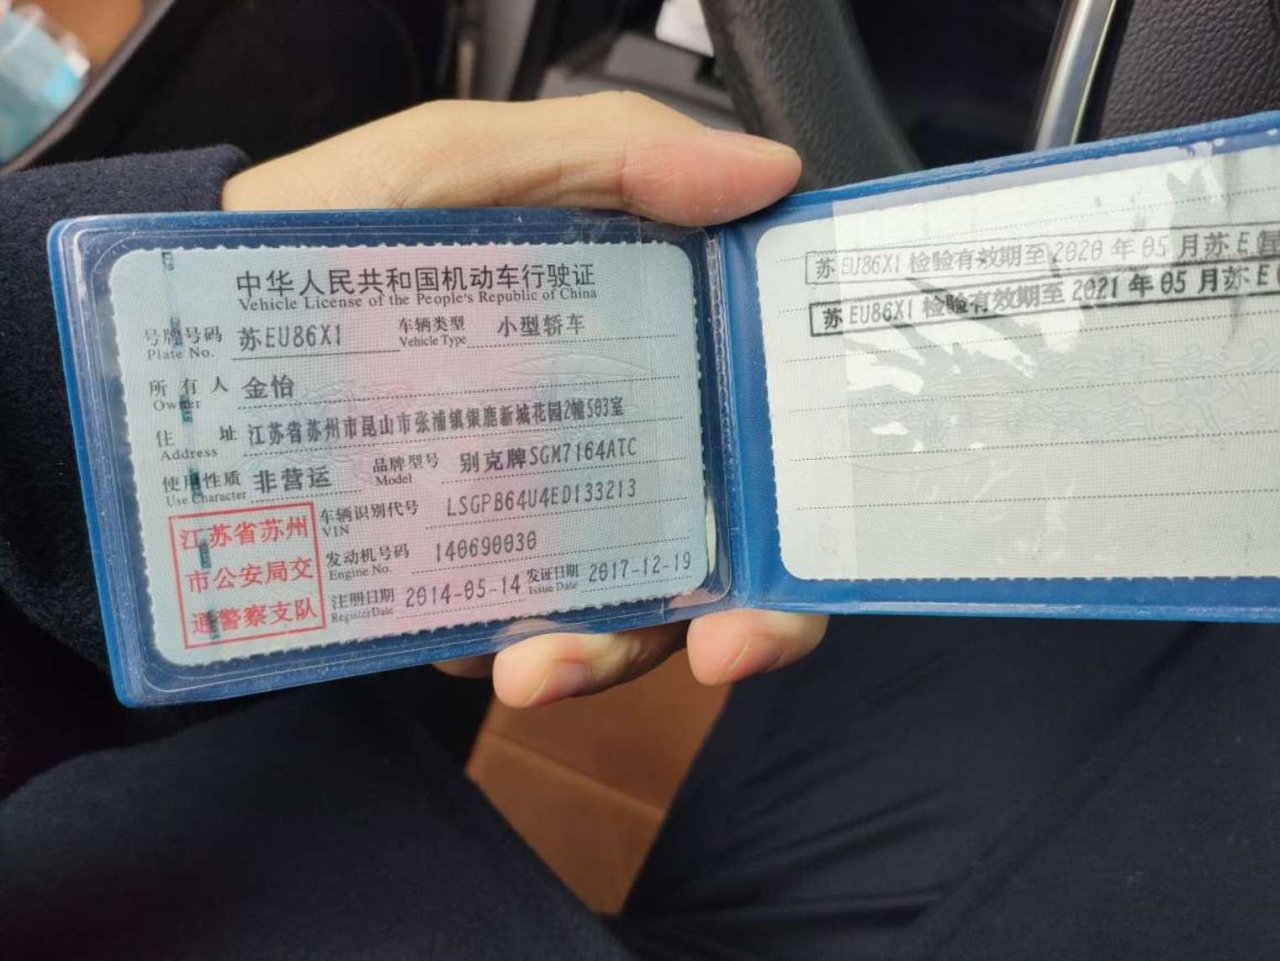 中华人民共和国机动车行驶证
Vehicle License of the People's Republic of China
号牌号码 苏EU86X1 车辆类型 小型轿车
Plate No. Vehicle Type
所有人 金怡
Owner
住址 江苏省苏州市昆山市张浦镇银鹿新城花园2幢503室
Address
使用性质 非营运 品牌型号 别克牌SGM7164ATC
Use Character Model
车辆识别代号 LSGPB64U4ED133213
VIN
发动机号码 140690030
Engine No.
注册日期 2014-05-14 发证日期 2017-12-19
Register Date Issue Date
江苏省苏州
市公安局交
通警察支队
苏EU86X1 检验有效期至2020年05月苏E
苏EU86X1 检验有效期至2021年05月苏E